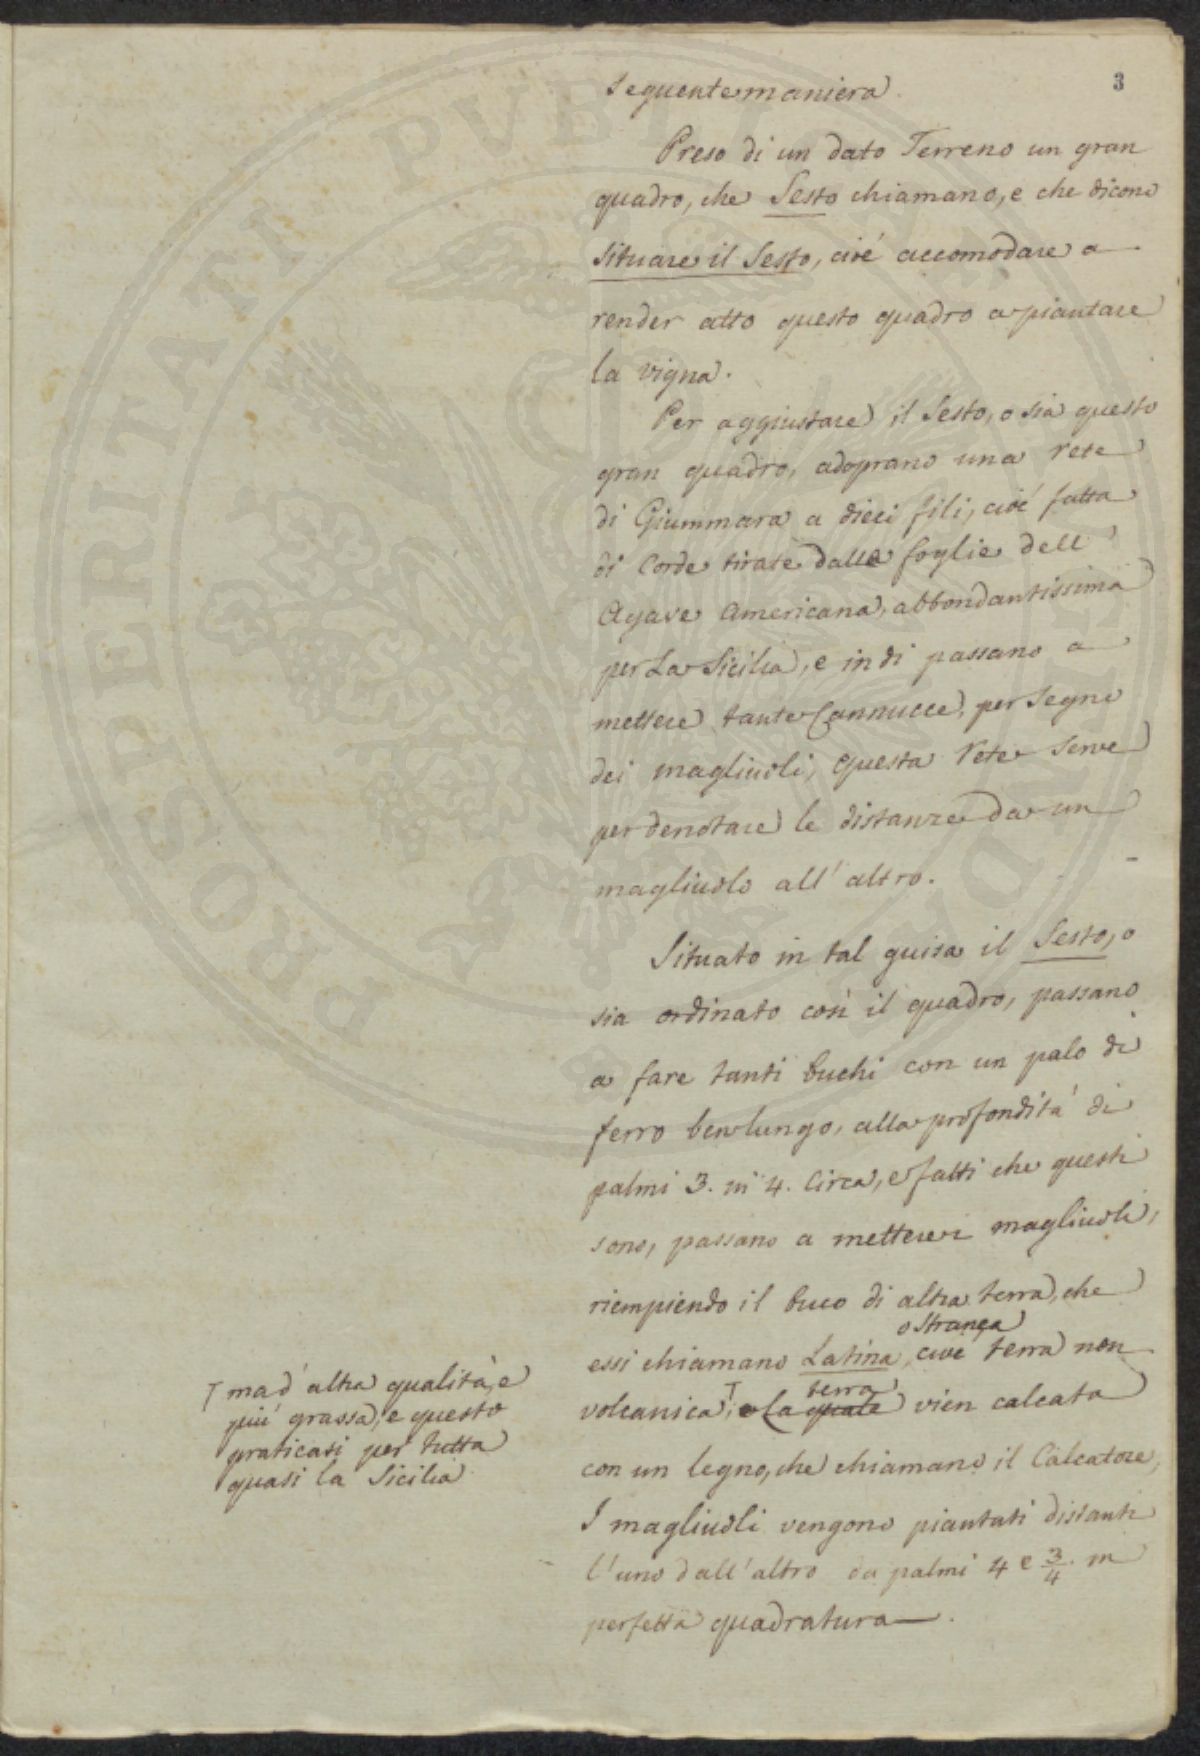 3
seguente maniera.
Preso di un dato Terreno un gran
quadro, che Sesto chiamano, e che dicono
situare il Sesto, cioé accomodare a
render atto questo quadro a piantare
la vigna.
Per aggiustare il Sesto, o sia questo
gran quadro, adoprano una rete
di Giummara a dieci fili, cioé fatta
di Corde tirate dalle foglie dell'
Agave Americana, abbondantissima
per La Sicilia, e indi passano a
mettere tante Cannucce, per segno
dei magliuoli, questa rete serve
per denotare le distanze da un
magliuolo all'altro.
Situato in tal guisa il Sesto, o
sia ordinato così il quadro, passano
a fare tanti buchi con un palo di
ferro ben lungo, alla profondità di
palmi 3. in 4. Circa, e fatti che questi
sono, passano a mettervi magliuoli,
riempiendo il buco di altra terra, che
o Stranea
essi chiamano Latina, cioé terra non
terra
volcanica, e la quale vien calcata
con un legno, che chiamano il Calcatore,
I magliuoli vengono piantati distanti
l'uno dall'altro da palmi 4 e 3/4 in
perfetta quadratura.
ma d'altra qualità, e
più grassa, e questo
praticasi per tutta
quasi la Sicilia
PROSPERITATI PVBLICAE